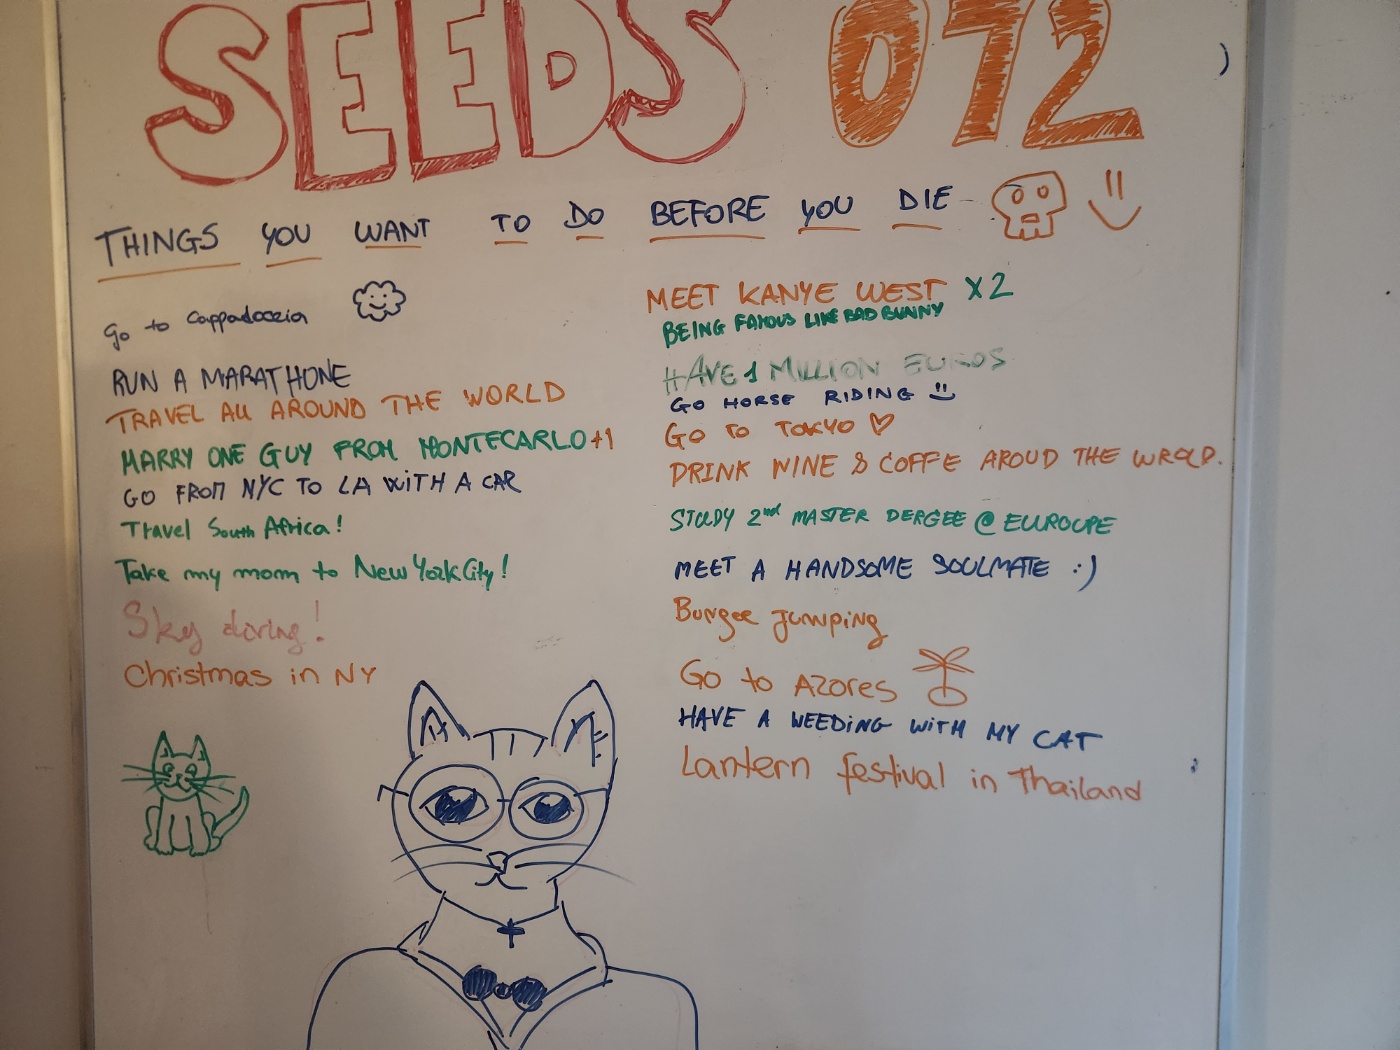 SEEDS 072
THINGS YOU WANT TO DO BEFORE YOU DIE
Go to Cappadoccia
RUN A MARATHONE
TRAVEL ALL AROUND THE WORLD
MARRY ONE GUY FROM MONTECARLO +1
GO FROM NYC TO LA WITH A CAR
Travel South Africa!
Take my mom to New York City!
Sky diving!
Christmas in NY
MEET KANYE WEST X2
BEING FAMOUS LIKE BAD BUNNY
HAVE 1 MILLION EUROS
GO HORSE RIDING
GO TO TOKYO
DRINK WINE & COFFE AROUD THE WROLD.
STUDY 2nd MASTER DERGEE @ EUROUPE
MEET A HANDSOME SOULMATE :)
Bungee jumping
Go to Azores
HAVE A WEEDING WITH MY CAT
Lantern festival in Thailand